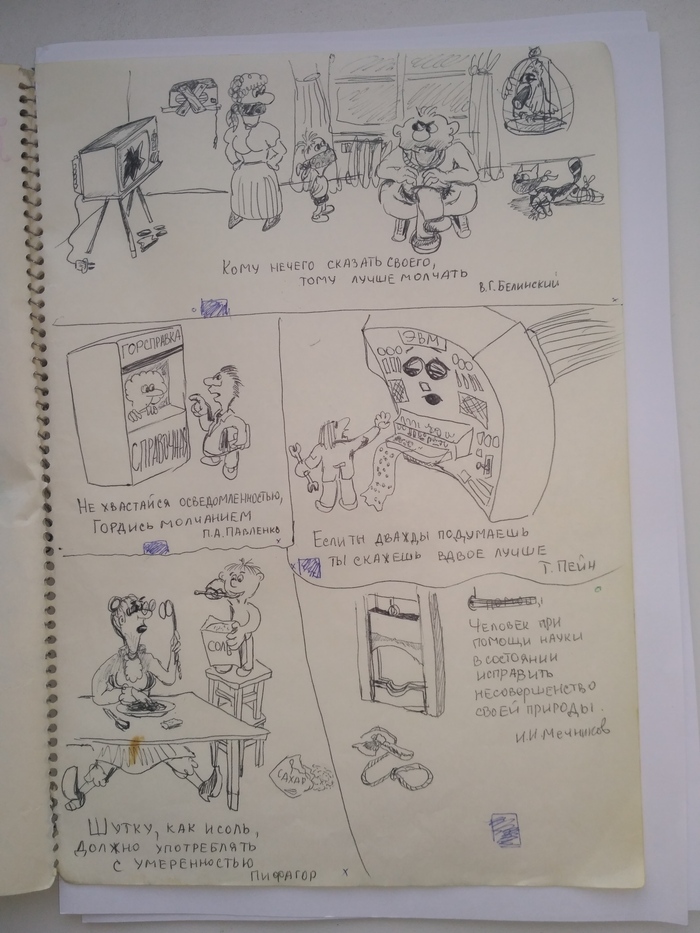 Кому нечего сказать своего,
тому лучше молчать
В.Г. Белинский
ГОРСПРАВКА
СПРАВОЧНАЯ
Не хвастайся осведомленностью,
Гордись молчанием
П.А. Павленко
ЭВМ
Если ты дважды подумаешь
ты скажешь вдвое лучше
Т. Пейн
СОЛЬ
САХАР
Шутку, как и соль,
должно употреблять
с умеренностью
Пифагор
Человек при
помощи науки
в состоянии
исправить
несовершенство
своей природы.
И.И. Мечников